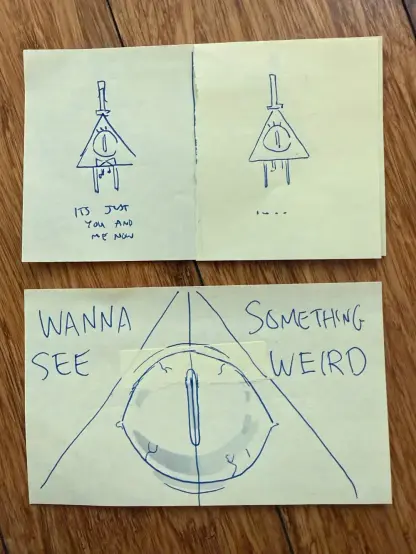 ITS JUST
YOU AND
ME NOW
.....
WANNA
SEE
SOMETHING
WEIRD